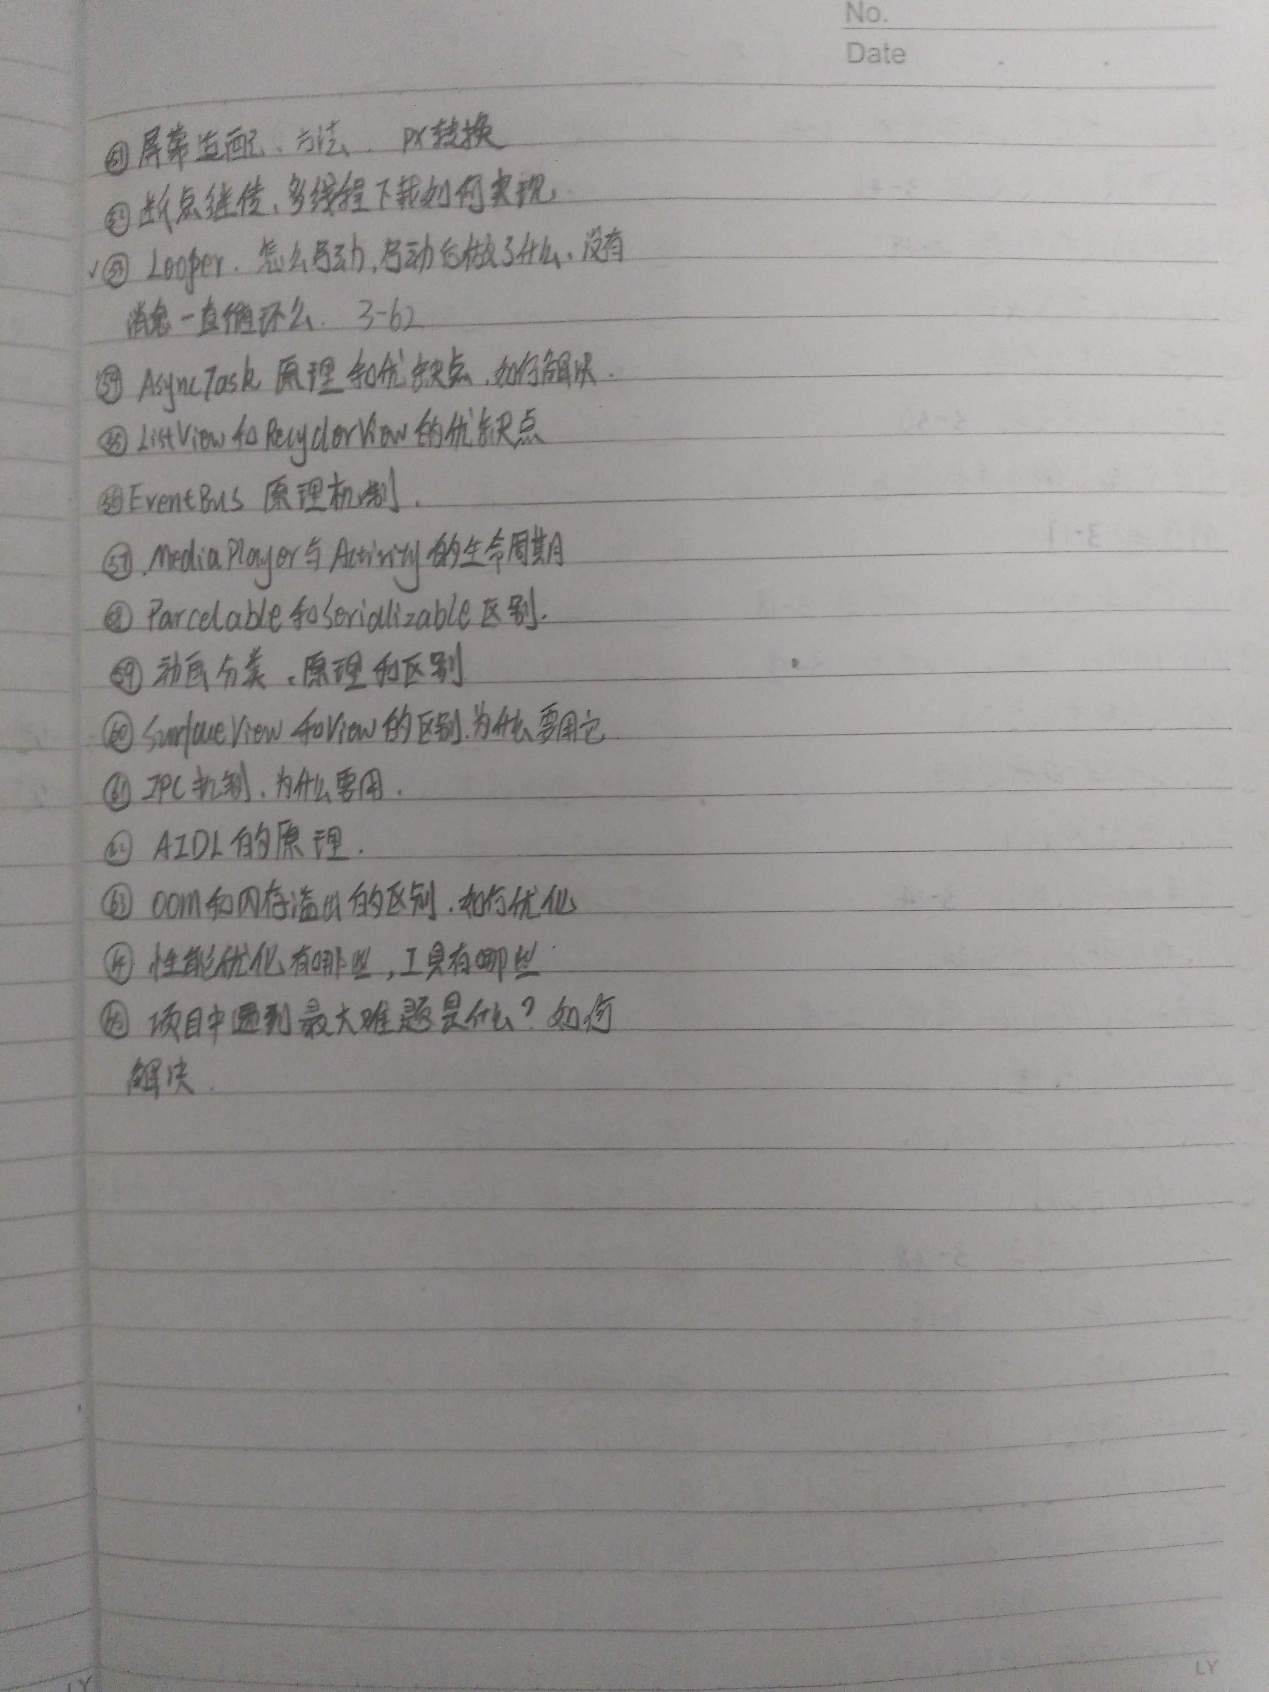 No.
Date
51 屏幕适配、方法、px转换
52 断点继传、多线程下载如何实现.
√53 Looper.怎么启动,启动后做了什么、没有
消息一直循环么. 3-62
54 AsyncTask 原理和优缺点、如何解决.
55 ListView和RecyclerView的优缺点
56 EventBus 原理机制.
57 MediaPlayer与Activity的生命周期
58 Parcelable和Serializable区别.
59 动画分类、原理和区别
60 SurfaceView和View的区别.为什么要用它
61 IPC机制、为什么要用.
62 AIDL的原理.
63 OOM和内存溢出的区别.如何优化
64 性能优化有哪些,工具有哪些
65 项目中遇到最大难题是什么?如何
解决.
LY
LY